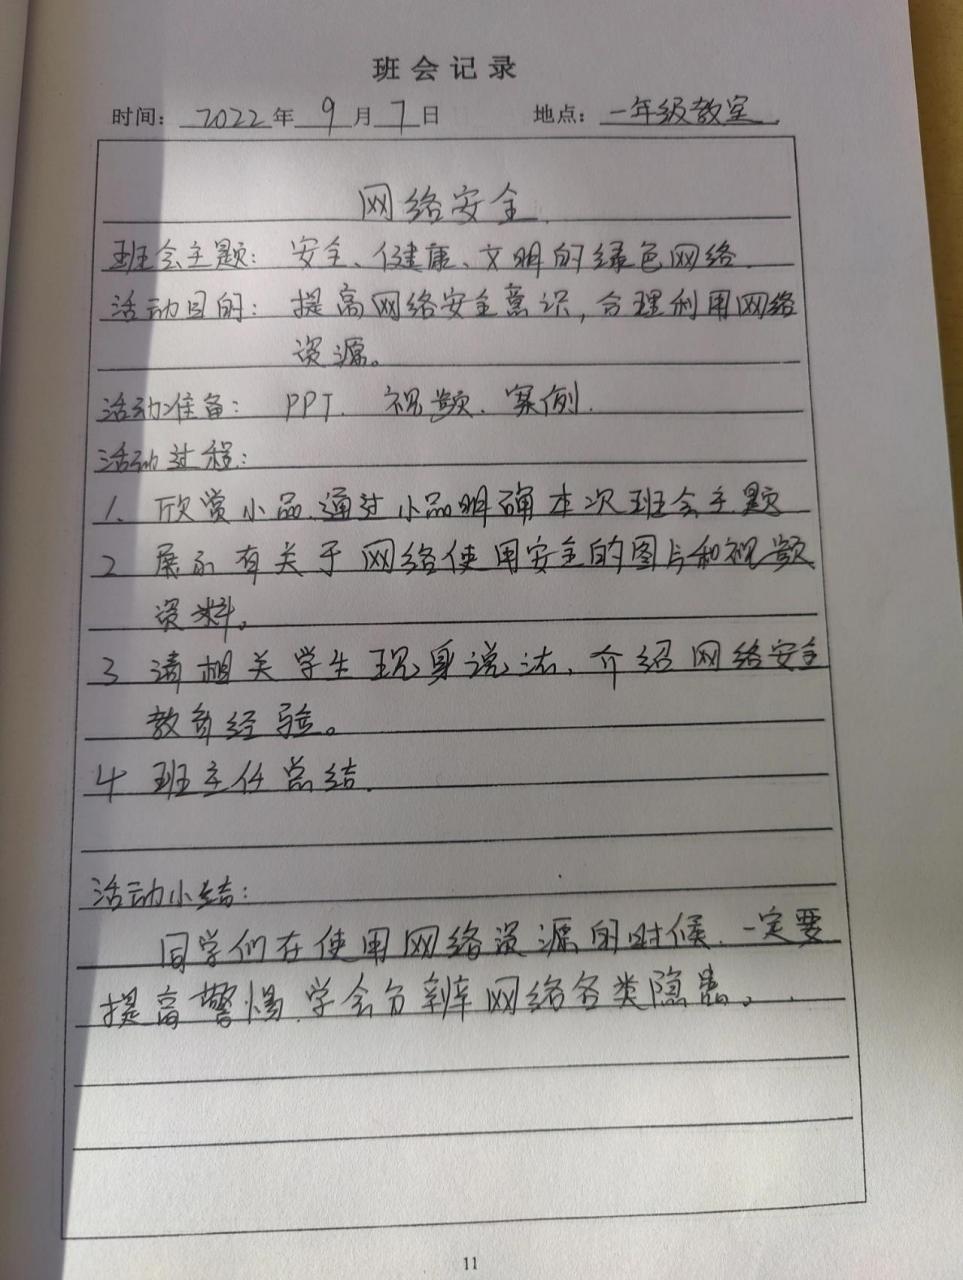 班会记录
时间：2022年9月7日 地点：一年级教室.
网络安全.
班会主题：安全、健康、文明的绿色网络.
活动目的：提高网络安全意识,合理利用网络
资源。
活动准备：PPT、视频、案例.
活动过程：
1、欣赏小品、通过小品明确本次班会主题
2 展示有关于网络使用安全的图片和视频
资料。
3 请相关学生现身说法、介绍网络安全
教育经验。
4 班主任总结.
活动小结：
同学们在使用网络资源的时候、一定要
提高警惕、学会分辨网络各类隐患。
11